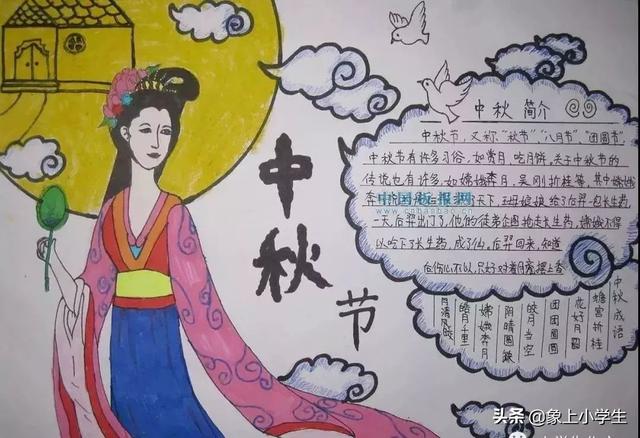 中秋节
中秋简介
中秋节,又称"秋节""八月节""团圆节"
中秋节有许多习俗,如赏月,吃月饼,关于中秋节的
传说也有许多,如嫦娥奔月,吴刚折桂等,其中嫦娥
天下,王母娘娘给了后羿一包长生药
一天后羿出门了,他的徒弟企图抢走长生药,嫦娥不得
以吃下了长生药,成了仙,后羿回来,知道
后伤心不以,只好对着月
中国板报网
www.cnbanbao.cn
中秋成语
蟾宫折桂
花好月圆
团团圆圆
皎月当空
阴晴圆缺
嫦娥奔月
皓月千里
月清风
头条 @象上小学生